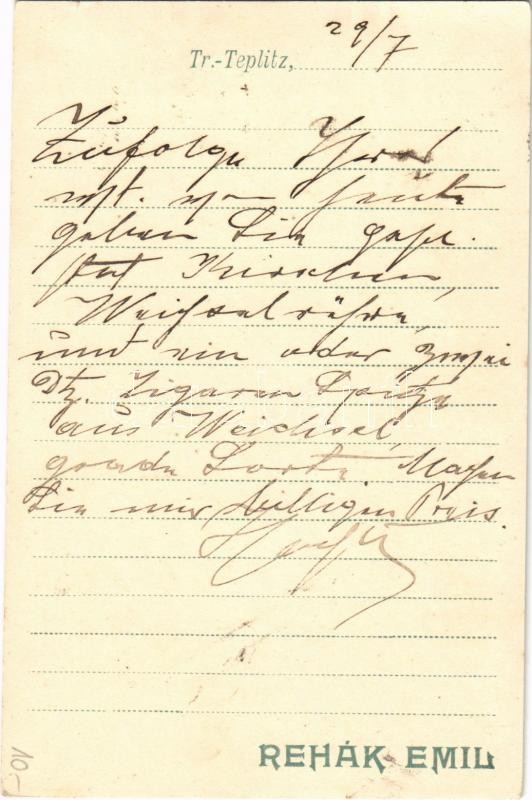 Tr.-Teplitz, 29/7
Zufolge Ihres
von heute
geben Sie gefl.
statt Kirschen,
Weichselröhre,
und ein oder zwei
Dtz. Zigaren Spitze
aus Weichsel,
grade Sorte, Machen
Sie mir billigen Preis.
REHÁK EMIL
10.-